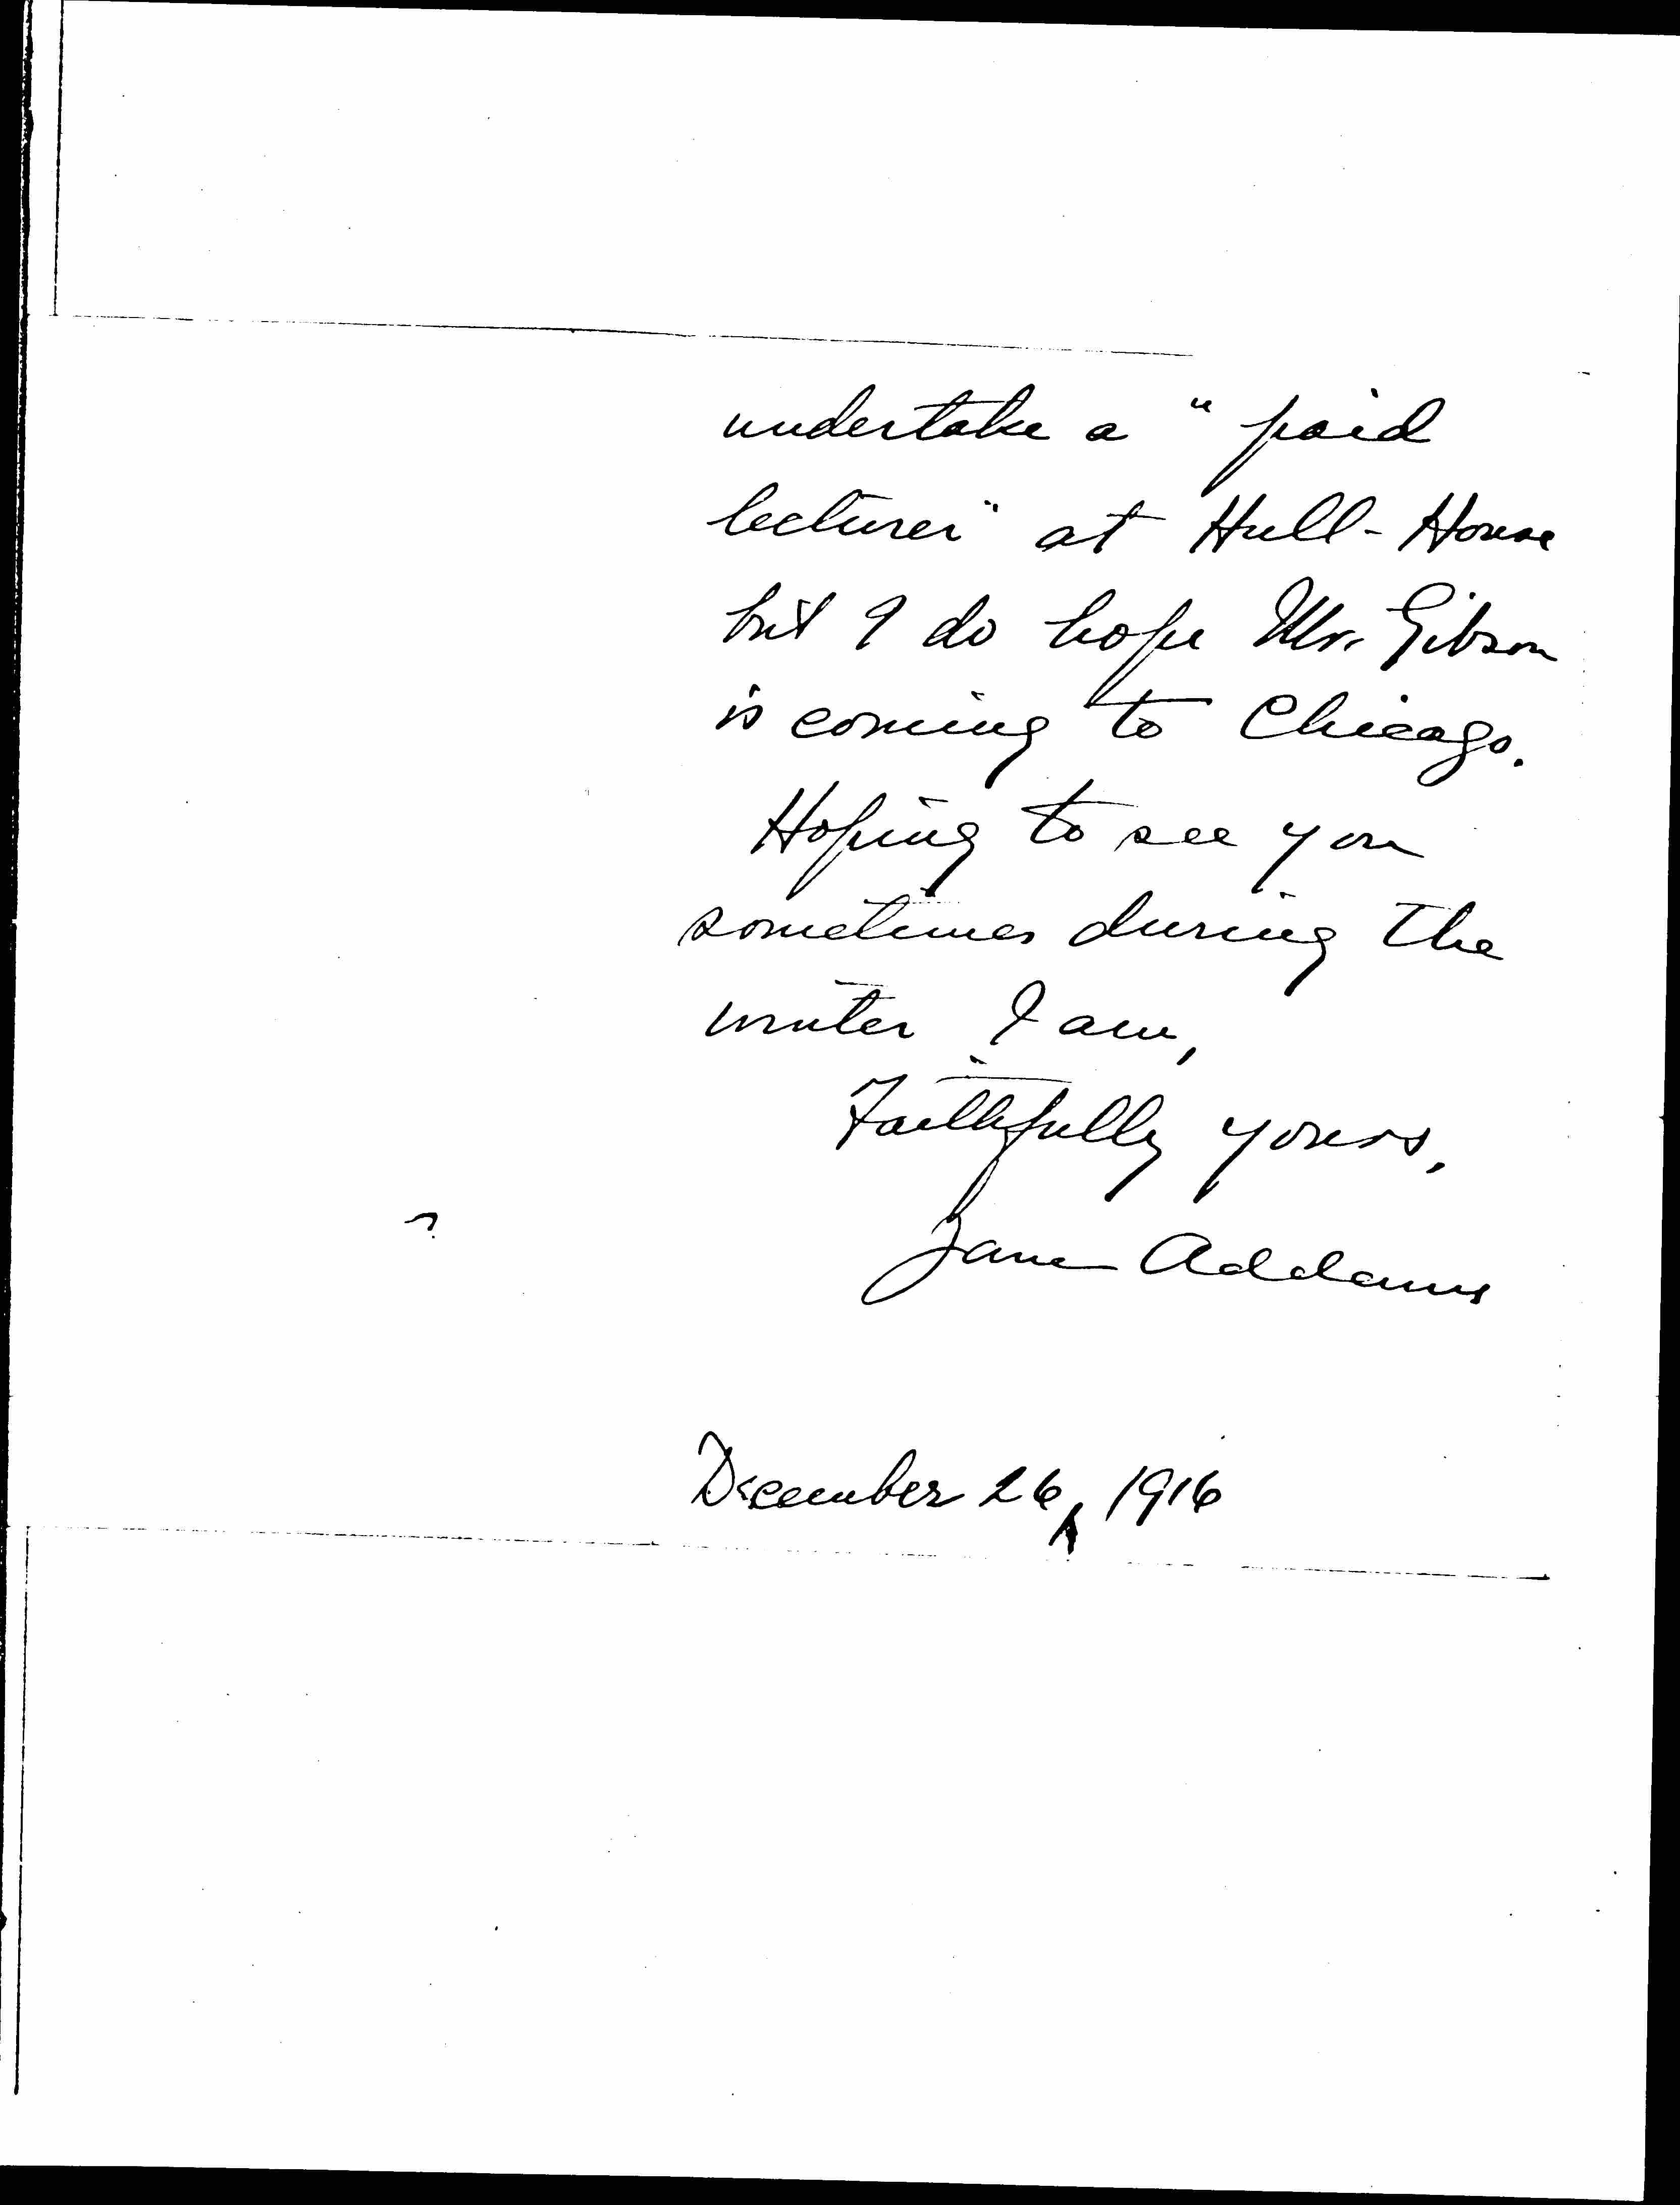 undertake a "paid
lecture" at Hull-House
but I do hope Mr. Gibson
is coming to Chicago.
Hoping to see you
sometimes during the
winter I am,
Faithfully yours,
Jane Addams
December 26, 1916